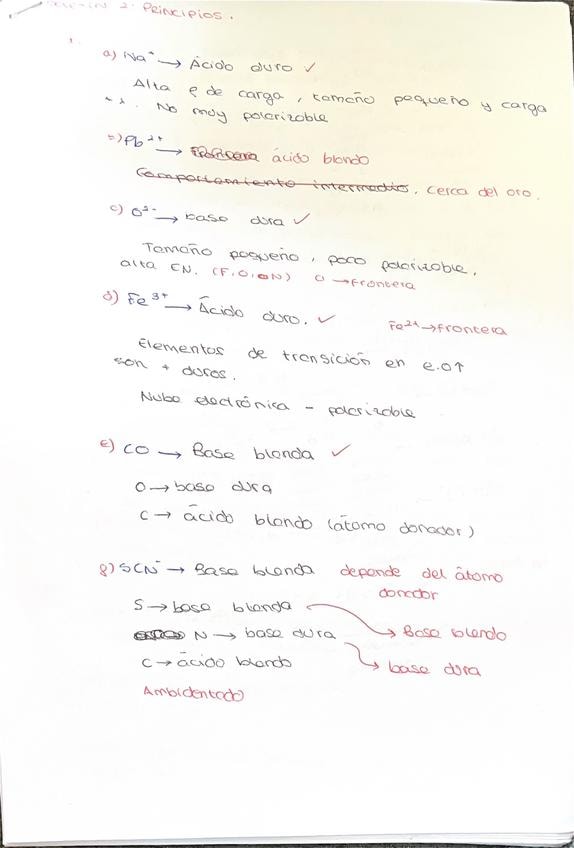 2. PRINCIPIOS.
a) Na⁺ → Ácido duro ✓
Alta ρ de carga, tamaño pequeño y carga
++. No muy polarizable
b) Pb²⁺ → ácido blando
Comportamiento intermedio. Cerca del oro.
c) O²⁻ → base dura ✓
Tamaño pequeño, poco polarizable,
alta EN. (F, O, N) Cl → frontera
d) Fe³⁺ → Ácido duro. ✓ Fe²⁺ → frontera
Elementos de transición en e.o↑
son + duros.
Nube electrónica - polarizable
E) CO → Base blanda ✓
O → base dura
C → ácido blando (átomo donador)
g) SCN⁻ → Base blanda depende del átomo
donador
S → base blanda → Base blanda
N → base dura → base dura
C → ácido blando
Ambidentado